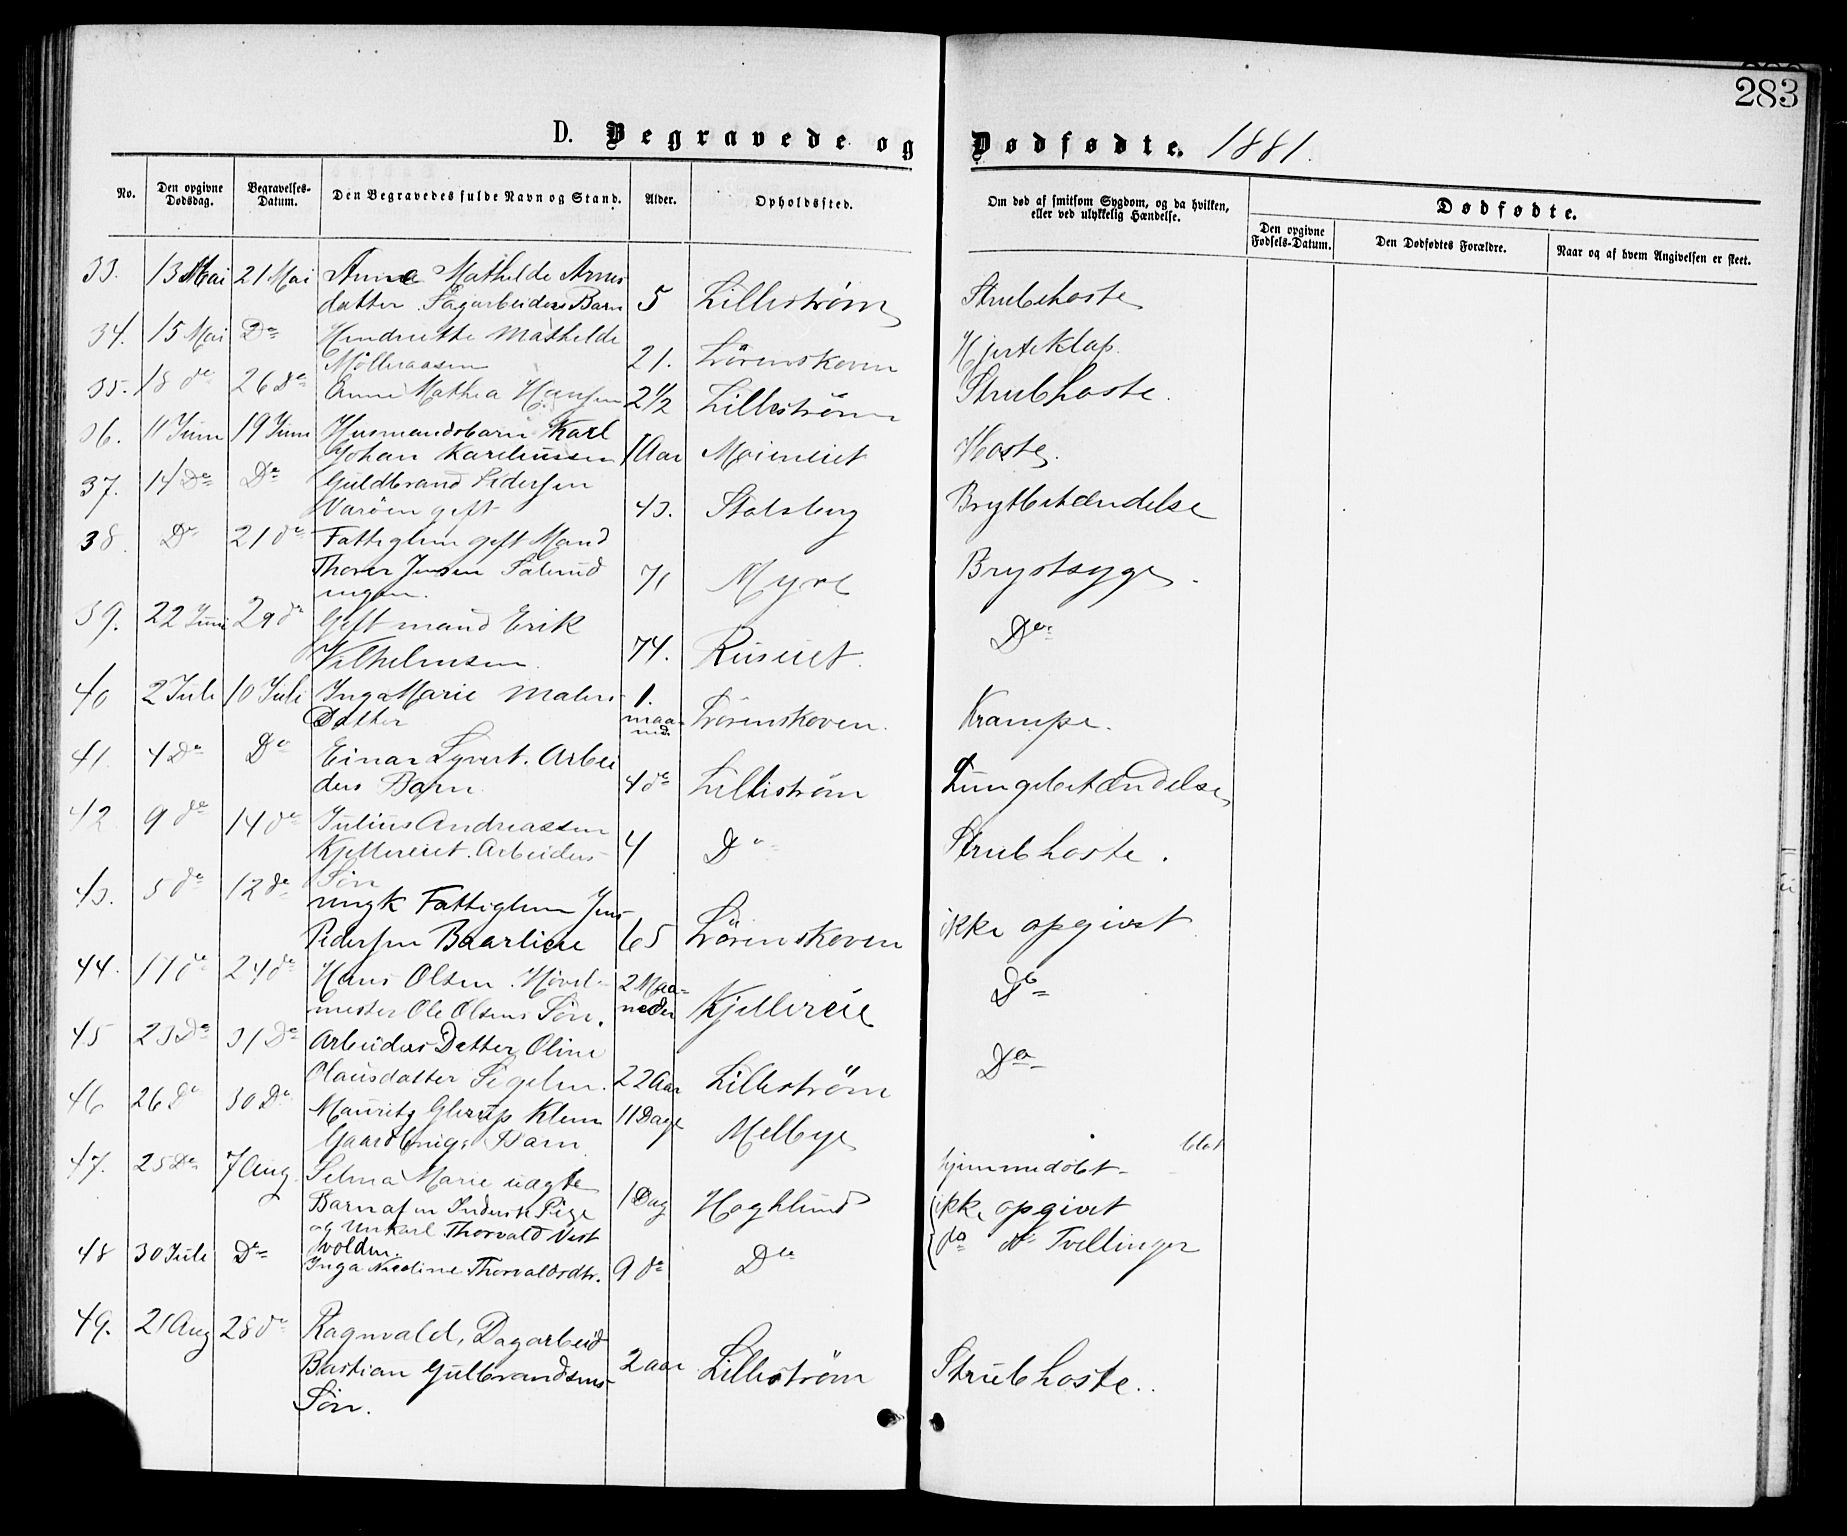 283
D. Begravede og Dødfødte. 1881.
No.
Den opgivne Dødsdag.
Begravelses-Datum.
Den Begravedes fulde Navn og Stand.
Alder.
Opholdssted.
Om død af smitsom Sygdom, og da hvilken, eller ved ulykkelig Hændelse.
Dødfødte.
Den opgivne Fødsels-Datum.
Den Dødfødtes Forældre.
Naar og af hvem Angivelsen er skeet.
33. 13 Mai 21 Mai Anna Mathilde Arnes
datter. Sagarbeiders Barn 5 Lillestrøm Strubehoste
34. 15 Mai Do Hendriette Mathilde
Mølleraasen 21. Lörenskoven Hjerteklap.
35. 18 do 26 Do Anne Mathea Hansen 2 1/2 Lillestrøm Strubhoste.
36. 11 Juni 19 Juni Husmandsbarn Karl
Johan Kareliussen 1 Aar Moieneiet Hoste.
37. 14 Do Do Guldbrand Pedersen
Varöen gift 43. Stalsberg Brystbetændelse
38. Do 21 do Fattiglem gift Mand
Thorer Jensen Solerud
71 Myre Brystsyge.
39. 22 Juni 29 do Gift mand Erik
Vilhelmsen. 74. Ruseiet. Do
40 2 Juli 10 Juli Inga Marie Malers
Datter 1. maaned. Lörenskoven. Krampe.
41. 4 Do Do Einar Syvert. Arbei
ders Barn. 4 do Lillestrøm Lungebetændelse
42 9 do 14 do Julius Andreassen
Kjellereiet. Arbeiders
Sön 4 Do Strubhoste.
43. 5 do 12 do ungk Fattiglem Jens
Pedersen Baarliere 65 Lörenskoven ikke opgivet
44. 17 do 24 do Hans Olsen. Høvel-
mester Ole Olsens Sön. 2 Maaneder Kjellereie Do
45 23 Do 31 Do Arbeiders Datter Oline
Olausdatter 22 Aar Lillestrøm Do
46 26 Do 30 Do Mauritz Glerup Klem
Gaardbrugs Barn 11 Dage Melbye
47. 25 Do 7 Aug Selma Marie uægte
Barn af Inderst Pige
og Unkarl Thorvald Vest
volden. 1 Dag Haghlund hjemmedøbt blot
ikke opgivet
48 30 Juli Do Inga Nicoline Thorvaldsdtr. 9 do Do do do Tvillinger
49. 21 Aug 28 do Ragnvald, Dagarbeid
Bastian Gulbrandsens
Sön. 2 aar Lillestrøm Strubhoste.